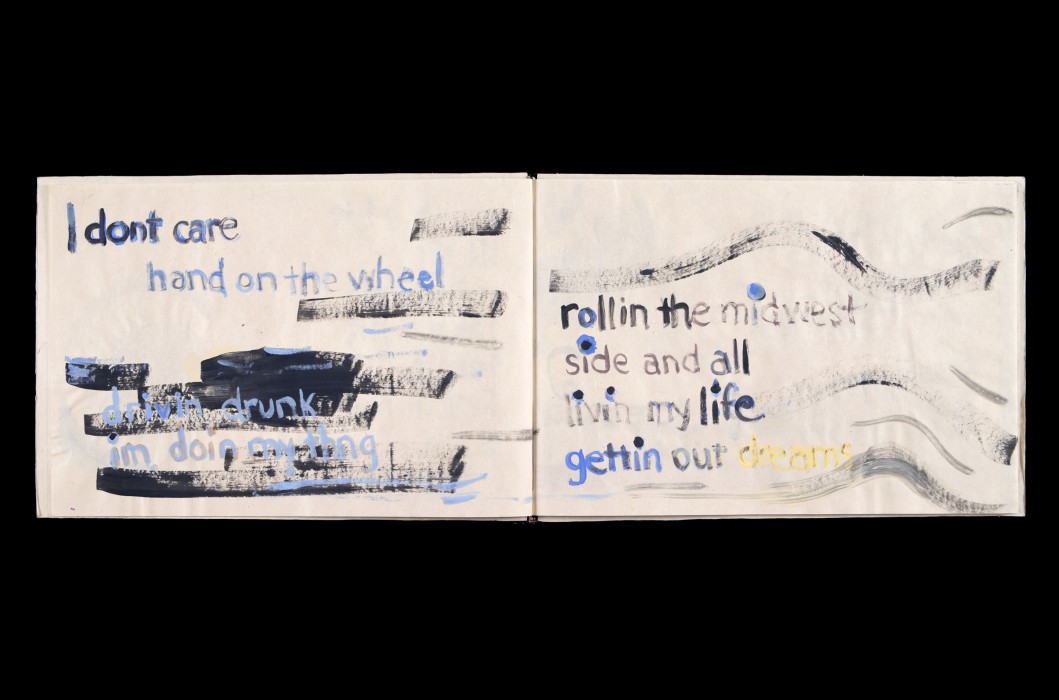 I dont care
hand on the wheel
drivin drunk
im doin my thng
rollin the midwest
side and all
livin my life
gettin out dreams